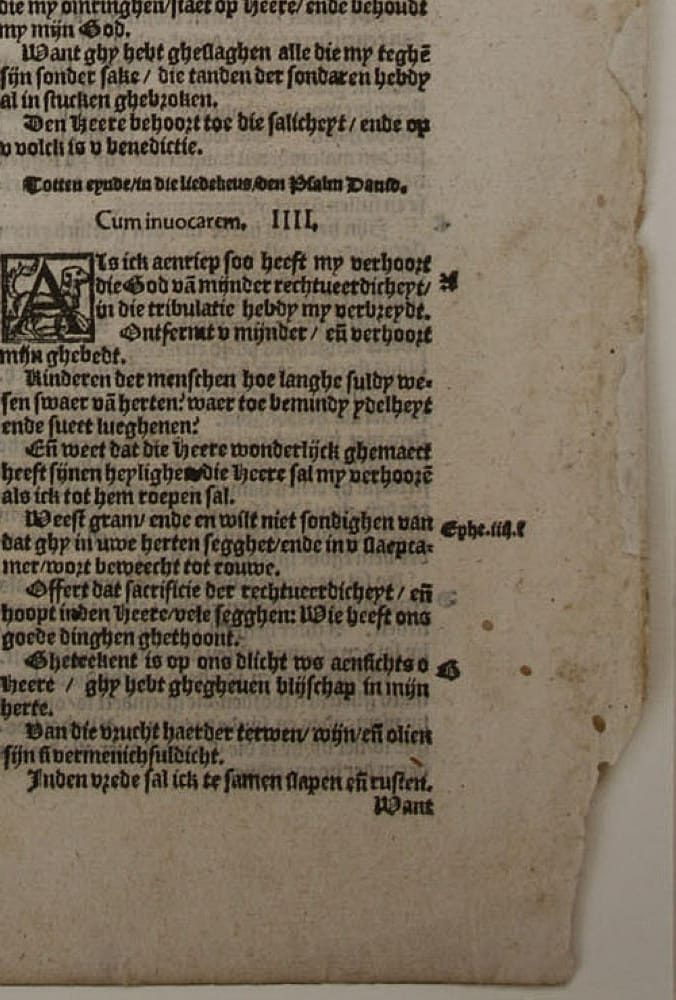 die my omringhen/staet op Heere/ende behoudt
my mijn God.
Want ghy hebt gheslaghen alle die my teghē
sijn sonder sake / die tanden der sondaren hebdy
al in stucken ghebroken.
Den Heere behoort toe die salicheyt / ende op
v volck is v benedictie.
Totten eynde/in die liedekens/den Psalm David.
Cum inuocarem. IIII.
Als ick aenriep soo heeft my verhoort
die God vā mijnder rechtueerdicheyt/ A
in die tribulatie hebdy my verbreydt.
Ontfermt v mijnder / eñ verhoort
mijn ghebedt.
Kinderen der menschen hoe langhe suldy we-
sen swaer vā herten? waer toe bemindy ydelheyt
ende suect lueghenen?
Eñ weet dat die Heere wonderlijck ghemaect
heeft sijnen heylighe die Heere sal my verhoorē
als ick tot hem roepen sal.
Weest gram/ ende en wilt niet sondighen van Ephe.iiij.f
dat ghy in uwe herten segghet/ende in v slaepca-
mer/wort beweecht tot rouwe.
Offert dat sacrificie der rechtueerdicheyt / eñ
hoopt inden Heere/vele segghen: Wie heeft ons
goede dinghen ghethoont.
Gheteekent is op ons dlicht ws aensichts o B
Heere / ghy hebt ghegheuen blijschap in mijn
herte.
Van die vrucht haerder terwen/wijn/eñ olien
sijn si vermenichfuldicht.
Inden vrede sal ick te samen slapen eñ rusten.
Want